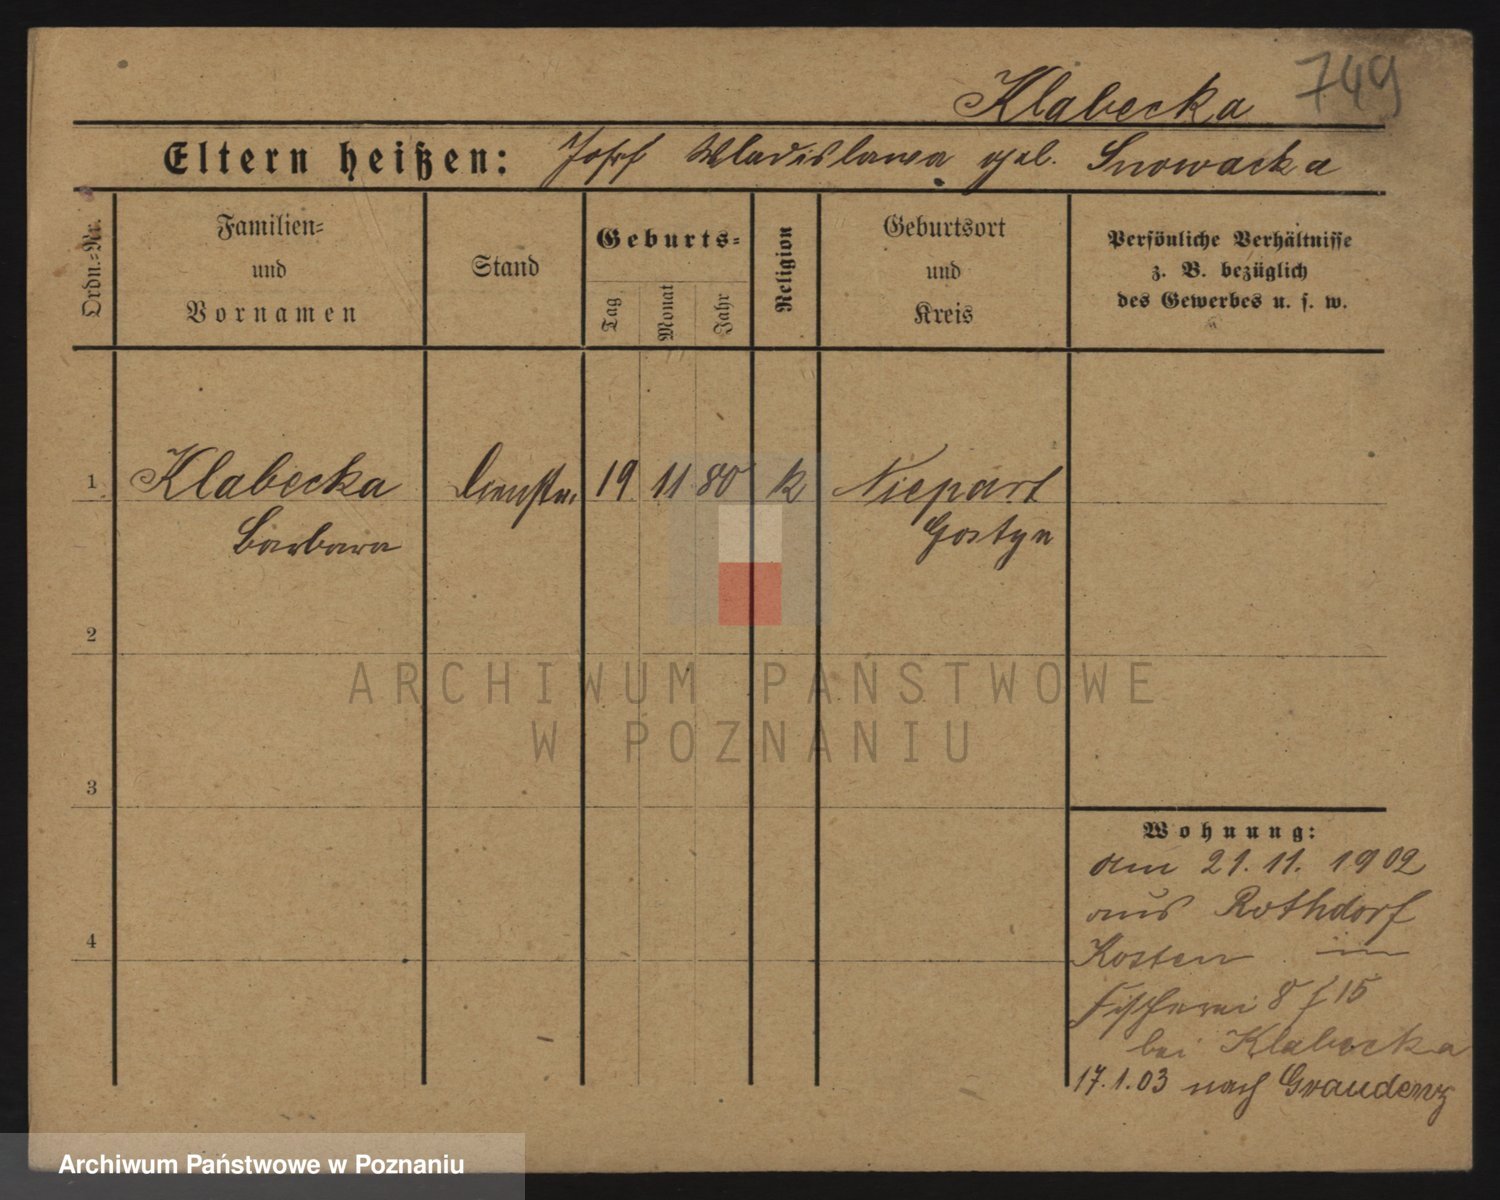 749
Klabecka
Eltern heißen: Josef Wladislawa geb. Snowacka
Ordn.-Nr.
Familien-
und
Vornamen
Stand
Geburts-
Tag
Monat
Jahr
Religion
Geburtsort
und
Kreis
Persönliche Verhältnisse
z. B. bezüglich
des Gewerbes u. s. w.
1 Klabecka Dienstm. 19 11 80 k Niepart
Barbara Gostyn
2
3
4
Wohnung:
am 21. 11. 1902
aus Rothdorf
Kosten in
Fischerei 8 f 15
bei Klabecka
17.1.03 nach Graudenz
ARCHIWUM PAŃSTWOWE
W POZNANIU
Archiwum Państwowe w Poznaniu